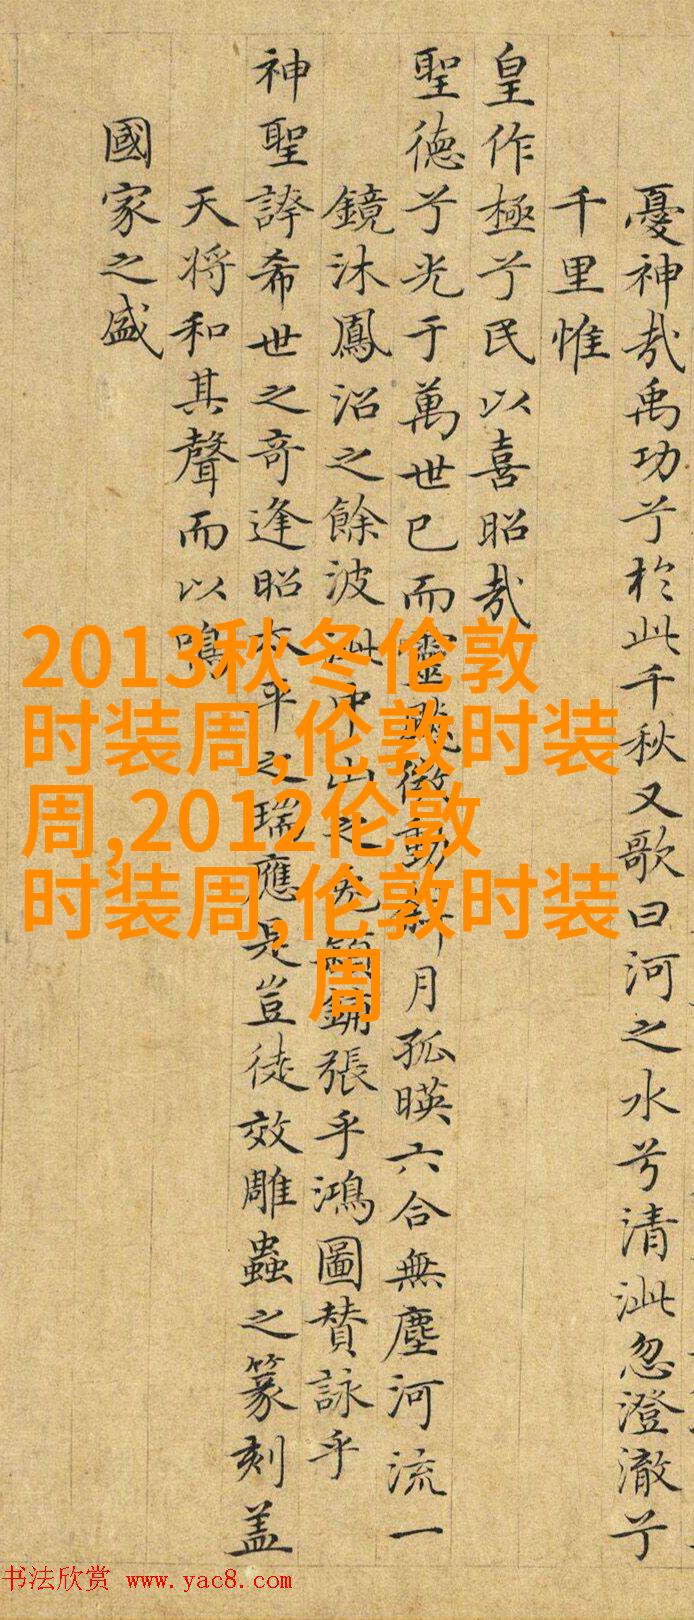 憂神哉禹功兮於此千秋又歌曰河之水兮清泚忽澄澈兮
千里惟
皇作極兮民以喜昭哉
聖德兮光于萬世已而靈微動月孤暎六合無塵河流一
鏡沐鳳沼之餘波中山之兔穎鋪張乎鴻圖賛詠乎
神聖誇希世之奇逢昭平之瑞應是豈徒效雕蟲之篆刻盖
天将和其聲而以鳴
國家之盛
2013秋冬伦敦
时装周,伦敦时装
周,2012伦敦
时装周,伦敦时装
周
书法欣赏 www.yac8.com